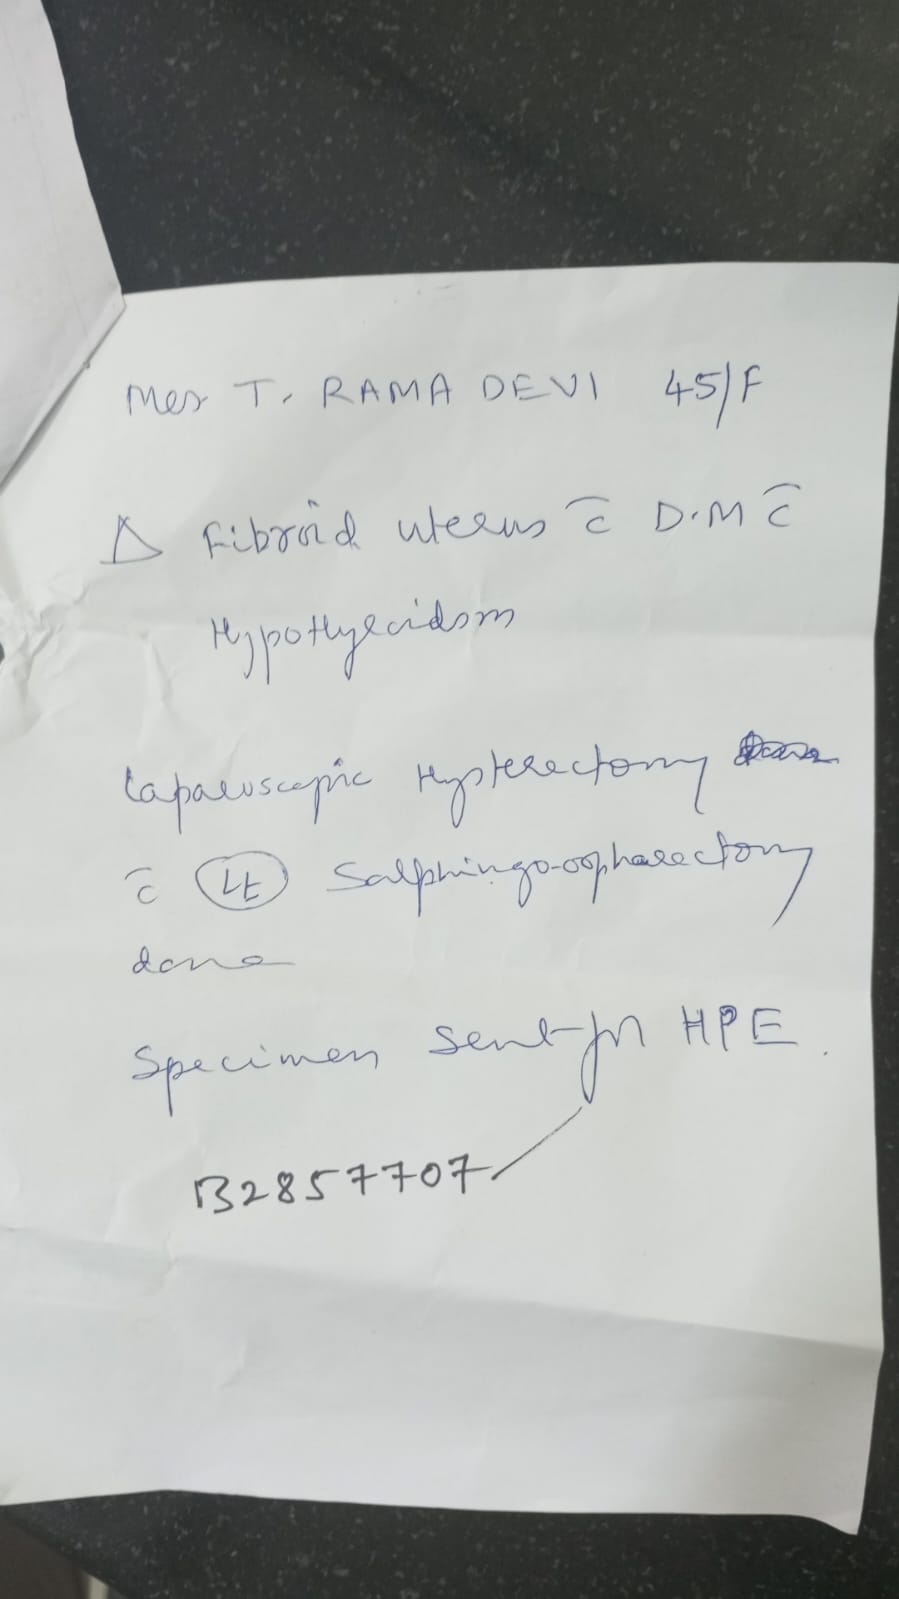 Mrs T. RAMA DEVI 45/F
Δ Fibroid uterus c̄ D.M c̄
Hypothyroidsm
Laparoscopic Hysterectomy
c̄ Lt Salphingo-oopharectomy
done
Specimen sent for HPE.
B2857707